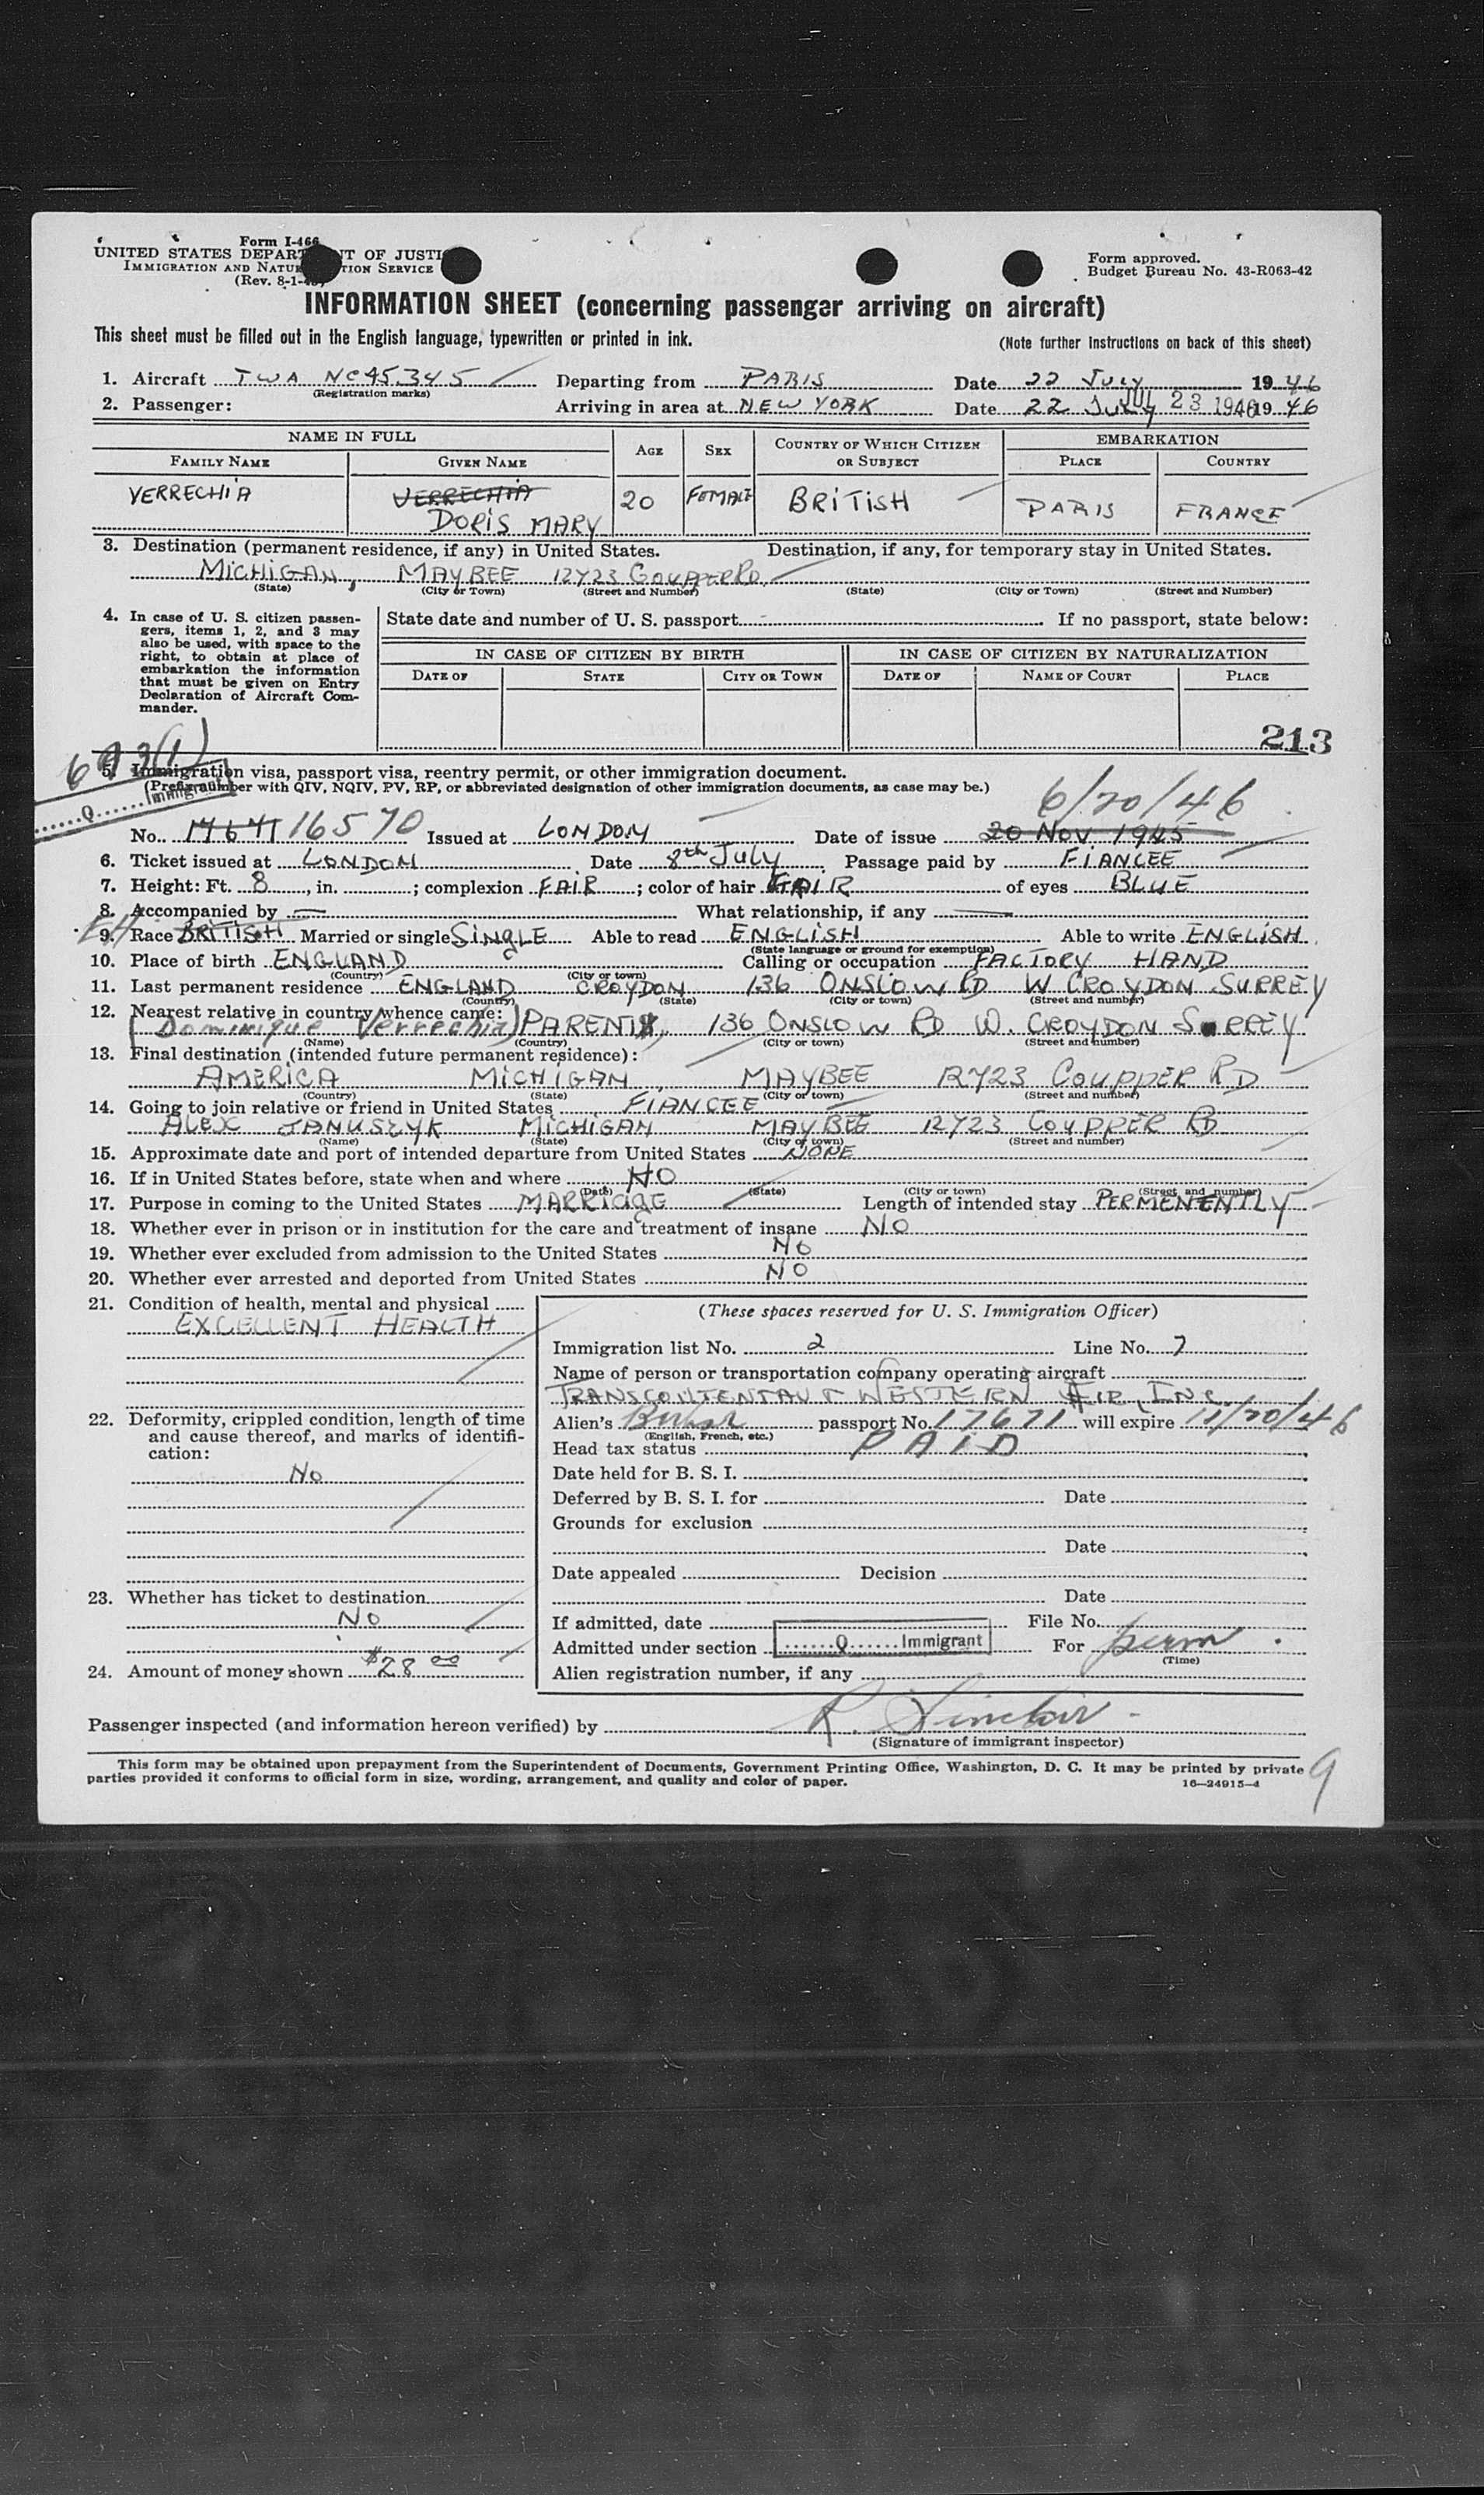 Form I-466
UNITED STATES DEPAR T OF JUSTI
IMMIGRATION AND NATU TION SERVICE
(Rev. 8-1-
Form approved.
Budget Bureau No. 43-R063-42
INFORMATION SHEET (concerning passenger arriving on aircraft)
This sheet must be filled out in the English language, typewritten or printed in ink.
(Note further instructions on back of this sheet)
1. Aircraft TWA NC45345 Departing from PARIS Date 22 July 1946
(Registration marks)
2. Passenger: Arriving in area at NEW YORK Date 22 July JUL 23 1946 1946
NAME IN FULL AGE SEX COUNTRY OF WHICH CITIZEN OR SUBJECT EMBARKATION
FAMILY NAME GIVEN NAME PLACE COUNTRY
VERRECHIA VERRECHIA 20 FEMALE BRITISH PARIS FRANCE
DORIS MARY
3. Destination (permanent residence, if any) in United States. Destination, if any, for temporary stay in United States.
MICHIGAN, MAYBEE 12723 COUPPER RD.
(State) (City or Town) (Street and Number) (State) (City or Town) (Street and Number)
4. In case of U. S. citizen passen-
gers, items 1, 2, and 3 may
also be used, with space to the
right, to obtain at place of
embarkation the information
that must be given on Entry
Declaration of Aircraft Com-
mander.
State date and number of U. S. passport If no passport, state below:
IN CASE OF CITIZEN BY BIRTH IN CASE OF CITIZEN BY NATURALIZATION
DATE OF STATE CITY OR TOWN DATE OF NAME OF COURT PLACE
213
Q Immigrant
5. Immigration visa, passport visa, reentry permit, or other immigration document.
(Prefix number with QIV, NQIV, PV, RP, or abbreviated designation of other immigration documents, as case may be.)
6/20/46
No. 16570 Issued at LONDON Date of issue 20 NOV 1945
6. Ticket issued at LONDON Date 8th July Passage paid by FIANCEE
7. Height: Ft. 8, in. ; complexion FAIR; color of hair FAIR of eyes BLUE
8. Accompanied by — What relationship, if any —
9. Race BRITISH Married or single SINgLE Able to read ENGLISH Able to write ENGLISH
(State language or ground for exemption)
10. Place of birth ENGLAND Calling or occupation FACTORY HAND
(Country) (City or town)
11. Last permanent residence ENGLAND CROYDON 136 ONSLOW RD W CROYDON SURREY
(Country) (State) (City or town) (Street and number)
12. Nearest relative in country whence came:
(Dominique Verrechia) PARENTS, 136 ONSLOW RD W. CROYDON SURREY
(Name) (Country) (City or town) (Street and number)
13. Final destination (intended future permanent residence):
AMERICA MICHIGAN, MAYBEE 12723 COUPPER RD
(Country) (State) (City or town) (Street and number)
14. Going to join relative or friend in United States FIANCEE
ALEX JANUSZYK MICHIGAN MAYBEE 12723 COUPPER RD
(Name) (State) (City or town) (Street and number)
15. Approximate date and port of intended departure from United States NONE
16. If in United States before, state when and where NO
(Date) (State) (City or town) (Street and number)
17. Purpose in coming to the United States MARRIAGE Length of intended stay PERMENENTLY
18. Whether ever in prison or in institution for the care and treatment of insane NO
19. Whether ever excluded from admission to the United States NO
20. Whether ever arrested and deported from United States NO
21. Condition of health, mental and physical
EXCELLENT HEALTH
22. Deformity, crippled condition, length of time
and cause thereof, and marks of identifi-
cation:
No
23. Whether has ticket to destination
No
24. Amount of money shown $28 00
(These spaces reserved for U. S. Immigration Officer)
Immigration list No. 2 Line No. 7
Name of person or transportation company operating aircraft
TRANSCONTENTAL & WESTERN AIR INC
Alien's passport No. 17671 will expire 11/20/46
(English, French, etc.)
Head tax status PAID
Date held for B. S. I.
Deferred by B. S. I. for Date
Grounds for exclusion
Date
Date appealed Decision
Date
If admitted, date File No.
Admitted under section Q Immigrant For perm.
(Time)
Alien registration number, if any
Passenger inspected (and information hereon verified) by R. Sinclair
(Signature of immigrant inspector)
This form may be obtained upon prepayment from the Superintendent of Documents, Government Printing Office, Washington, D. C. It may be printed by private
parties provided it conforms to official form in size, wording, arrangement, and quality and color of paper.
16—24915-4
9